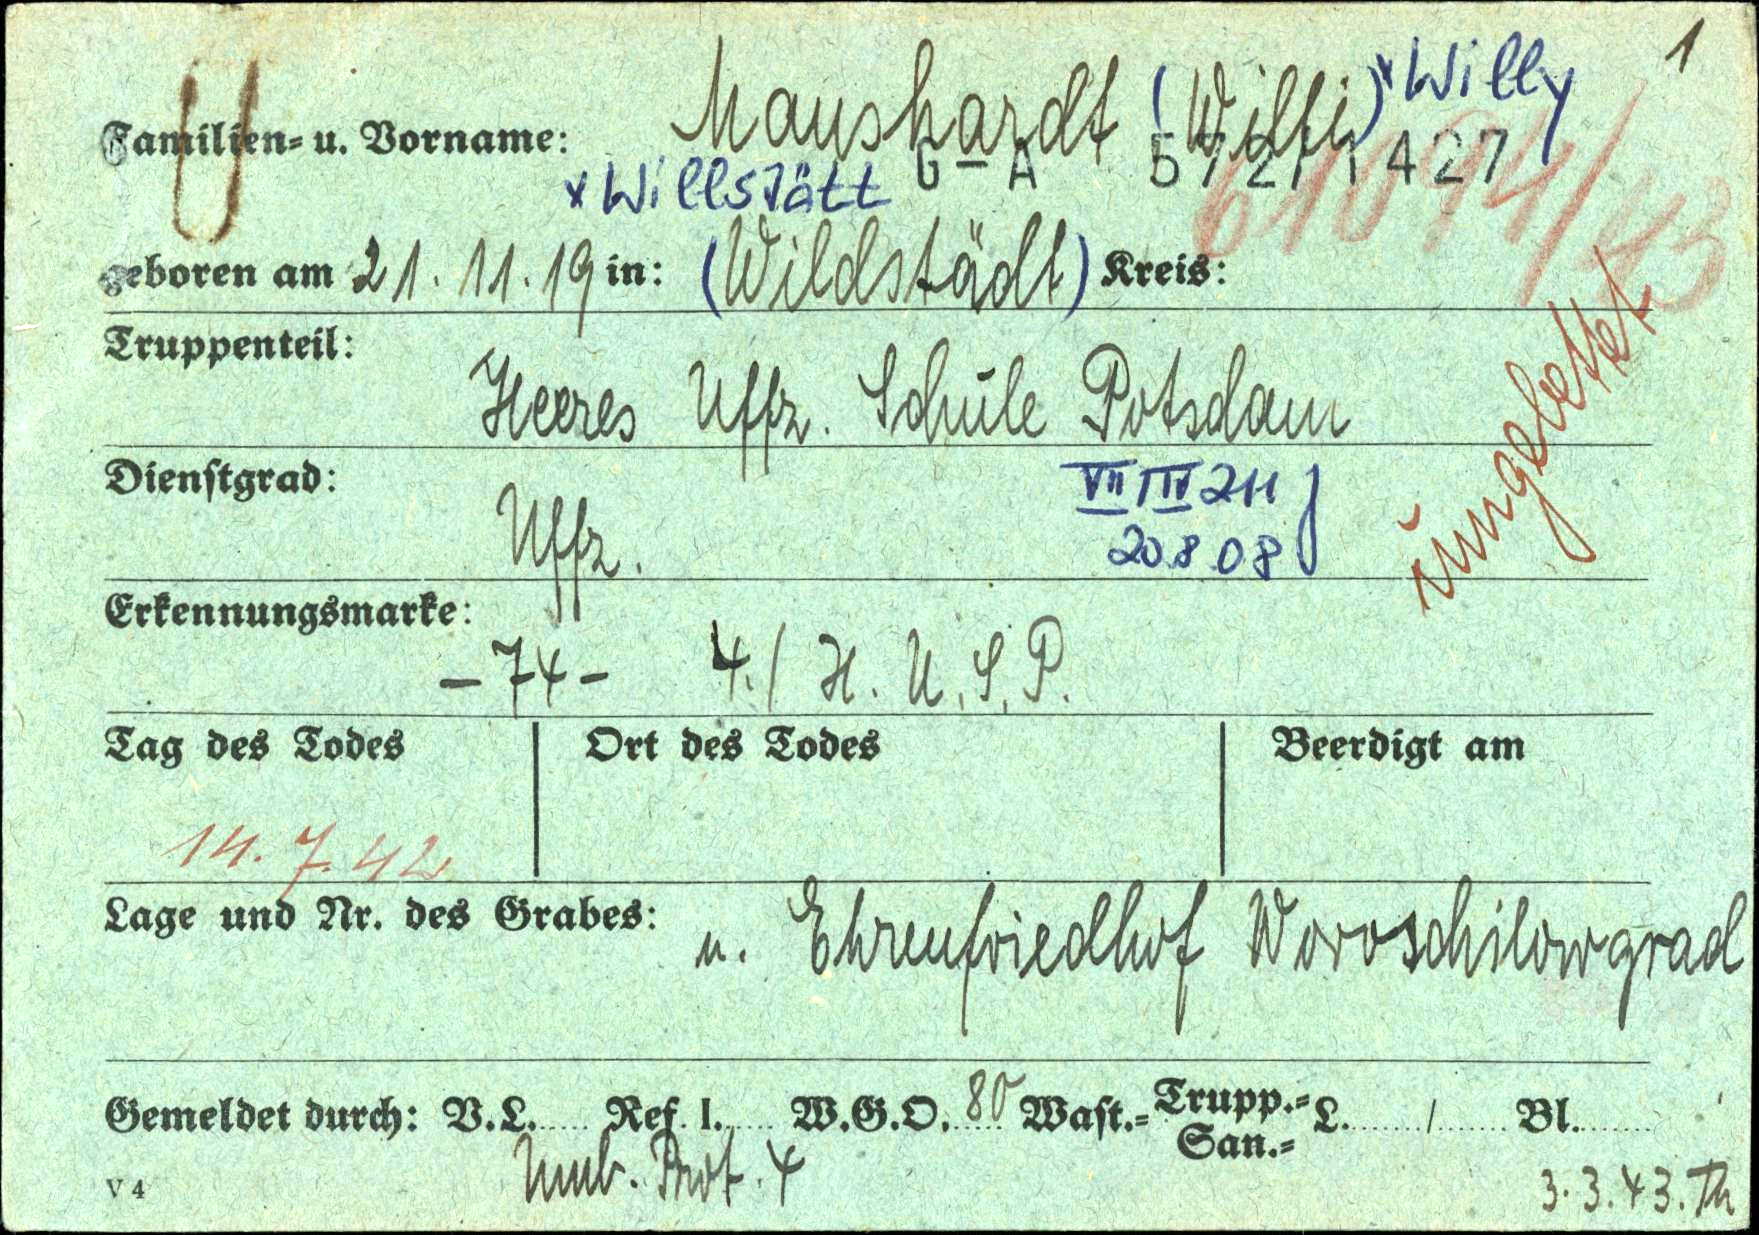 1
Familien- u. Vorname: Maushardt (Willi) x Willy
x Willstätt G-A 572/1427
61094/43
geboren am 21.11.19 in: (Wildstädt) Kreis:
Truppenteil:
Heeres Uffz. Schule Potsdam
umgebettet
Dienstgrad:
Uffz.
VII/IV 211
20.8.08
Erkennungsmarke:
-74- 4./H.U.S.P.
Tag des Todes Ort des Todes Beerdigt am
14.7.42
Lage und Nr. des Grabes: u. Ehrenfriedhof Woroschilowgrad
Gemeldet durch: V.L..... Ref. I..... W.G.O. 80 Wast.- Trupp.- San.- L......./....... Bl........
Umb. Prot. 4
V 4
3.3.43. Th